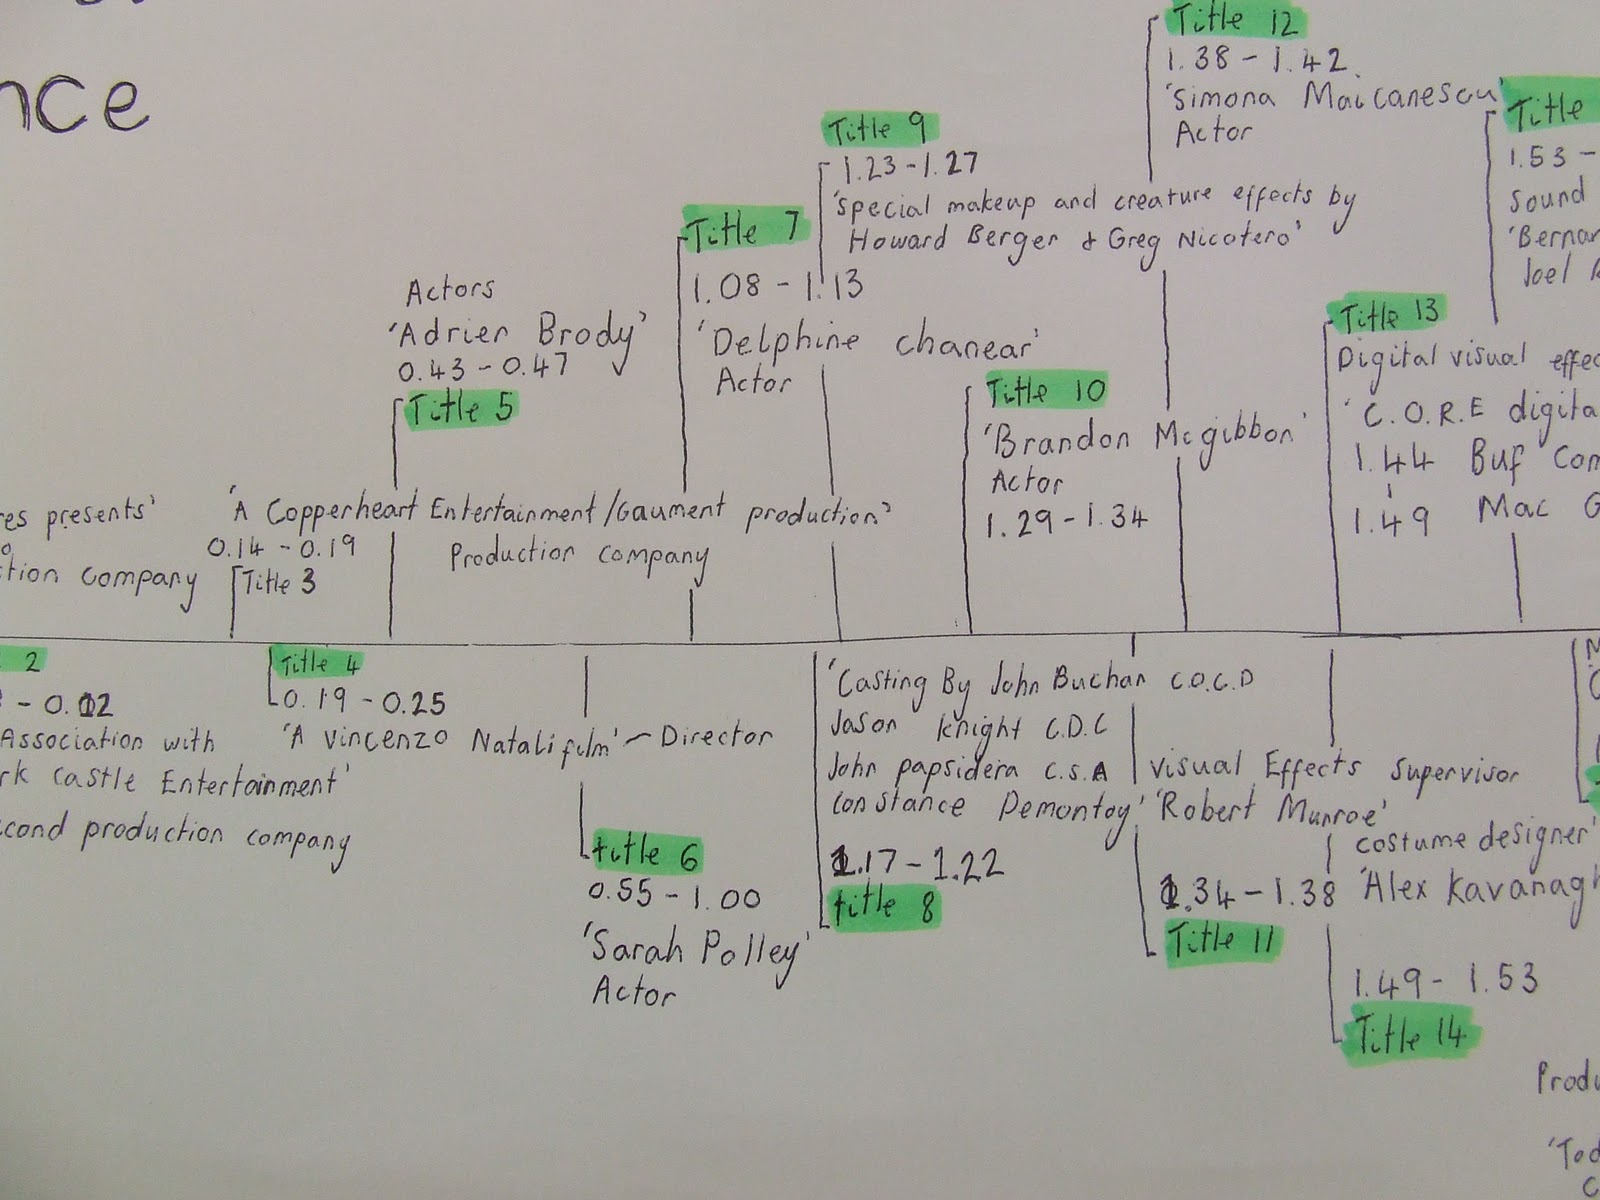 nce
Title 12
1.38 - 1.42
'Simona Maicanescu'
Actor
Title
1.53 -
Sound
'Bernar
Joel
Title 9
1.23 - 1.27
'special makeup and creature effects by
Howard Berger & Greg Nicotero'
Title 7
1.08 - 1.13
'Delphine chanear'
Actor
Actors
'Adrien Brody'
0.43 - 0.47
Title 5
Title 10
'Brandon Mcgibbon'
Actor
1.29 - 1.34
Title 13
Digital visual effec
'C.O.R.E digita
1.44 Buf Com
1.49 Mac G
res presents'
ction company
'A Copperheart Entertainment/Gaument production'
0.14 - 0.19
Production company
Title 3
2
- 0.02
Association with
rk Castle Entertainment'
cond production company
Title 4
0.19 - 0.25
'A Vincenzo Natali film' - Director
title 6
0.55 - 1.00
'Sarah Polley'
Actor
'Casting By John Buchan C.O.C.D
Jason Knight C.D.C
John papsidera C.S.A
Constance Demontoy'
1.17 - 1.22
title 8
Visual Effects supervisor
'Robert Munroe'
1.34 - 1.38
Title 11
costume designer'
'Alex Kavanagh
1.49 - 1.53
Title 14
Produ
'Tod